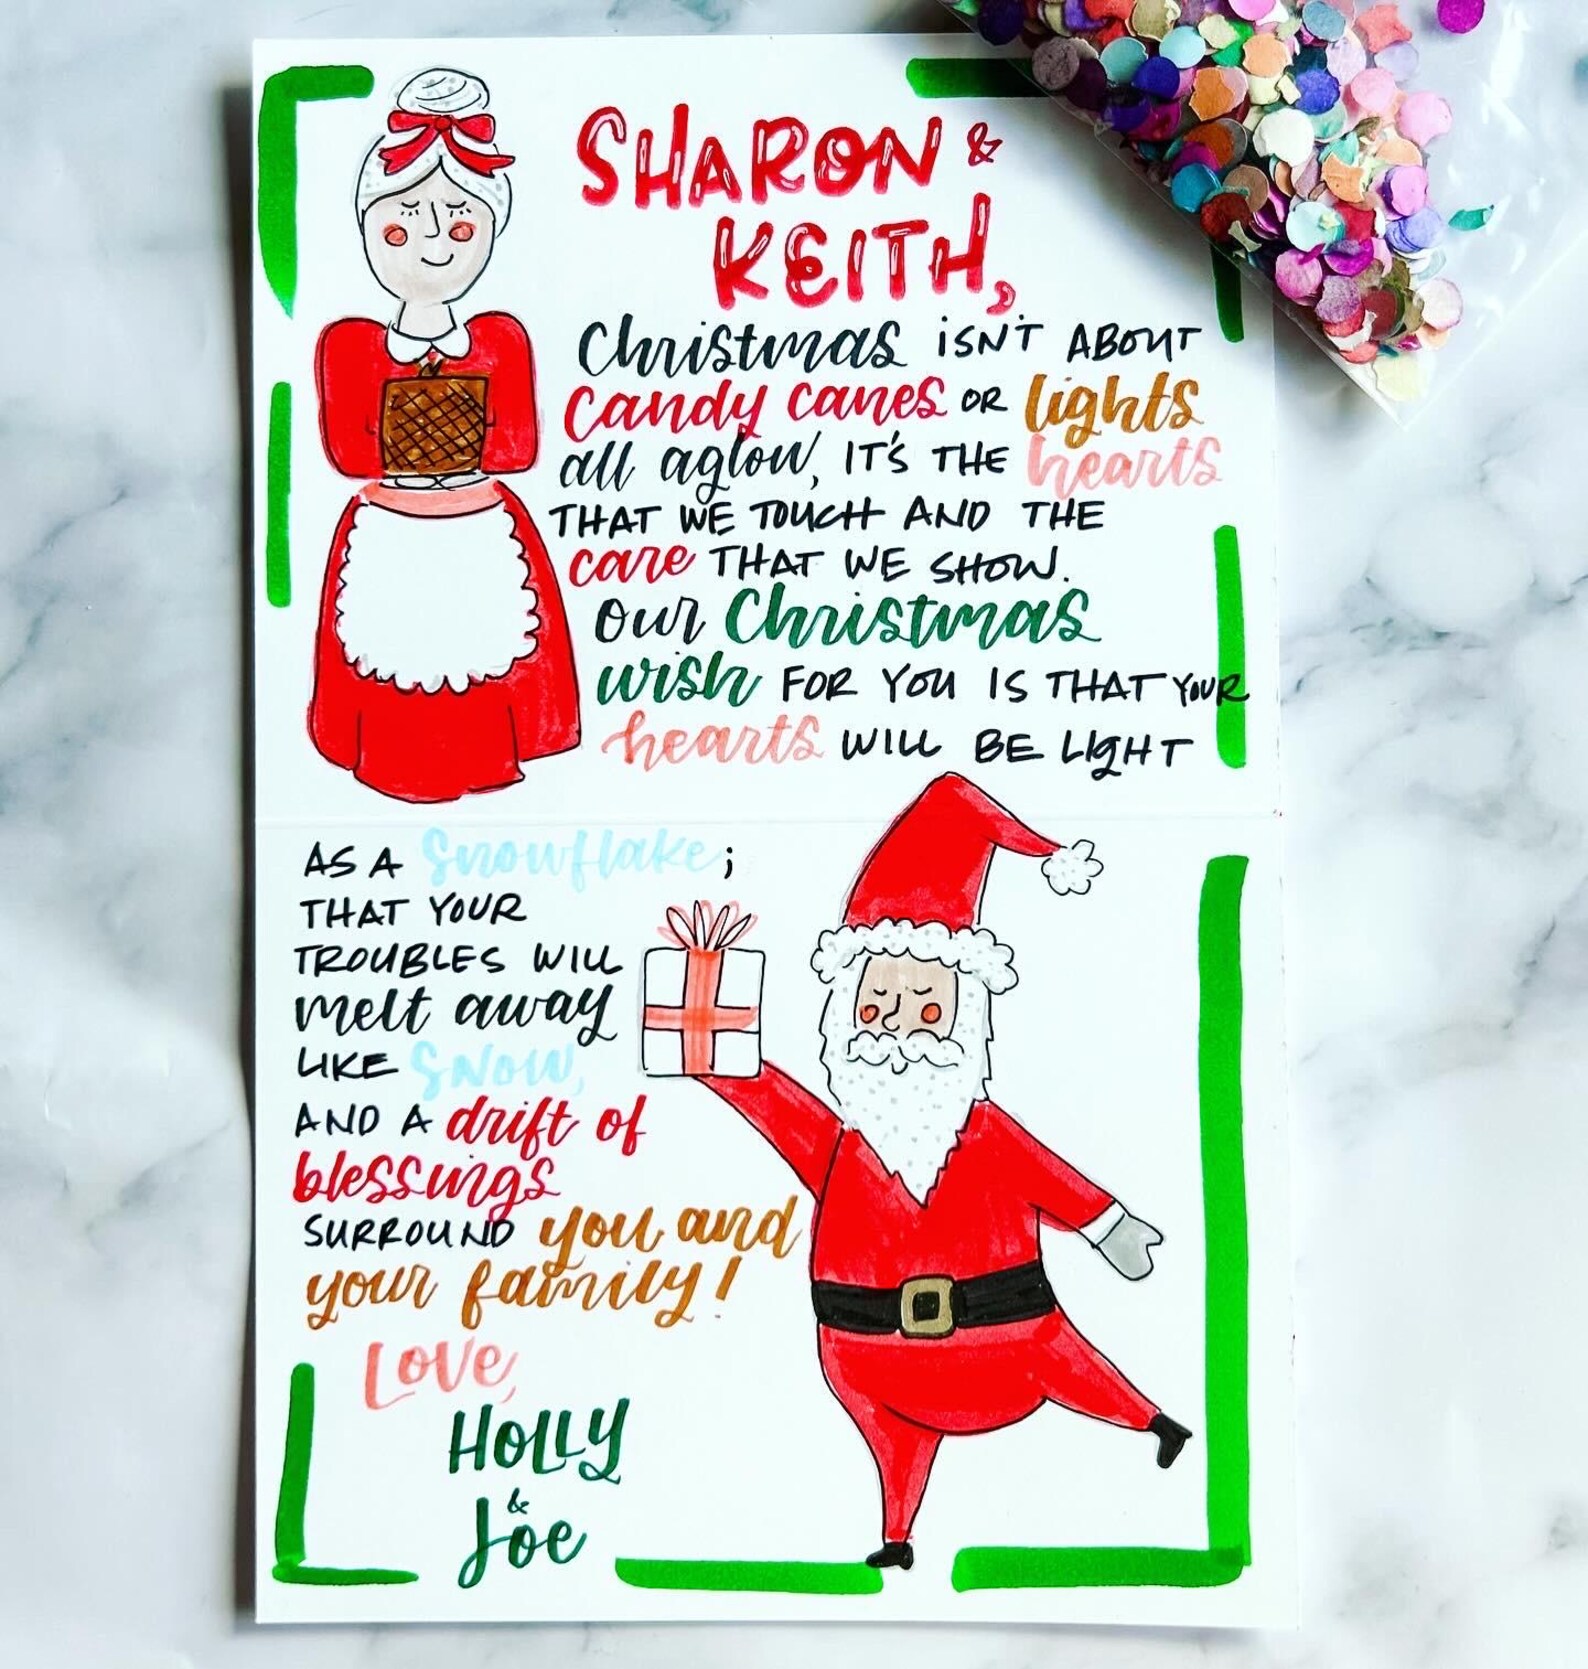 SHARON &
KEITH,
Christmas ISN'T ABOUT
candy canes OR lights
all aglow, IT'S THE hearts
THAT WE TOUCH AND THE
care THAT WE SHOW.
our Christmas
wish FOR YOU IS THAT YOUR
hearts WILL BE LIGHT
AS A Snowflake;
THAT YOUR
TROUBLES WILL
melt away
LIKE SNOW,
AND A drift of
blessings
SURROUND you and
your family!
LOVE,
HOLLY
&
Joe